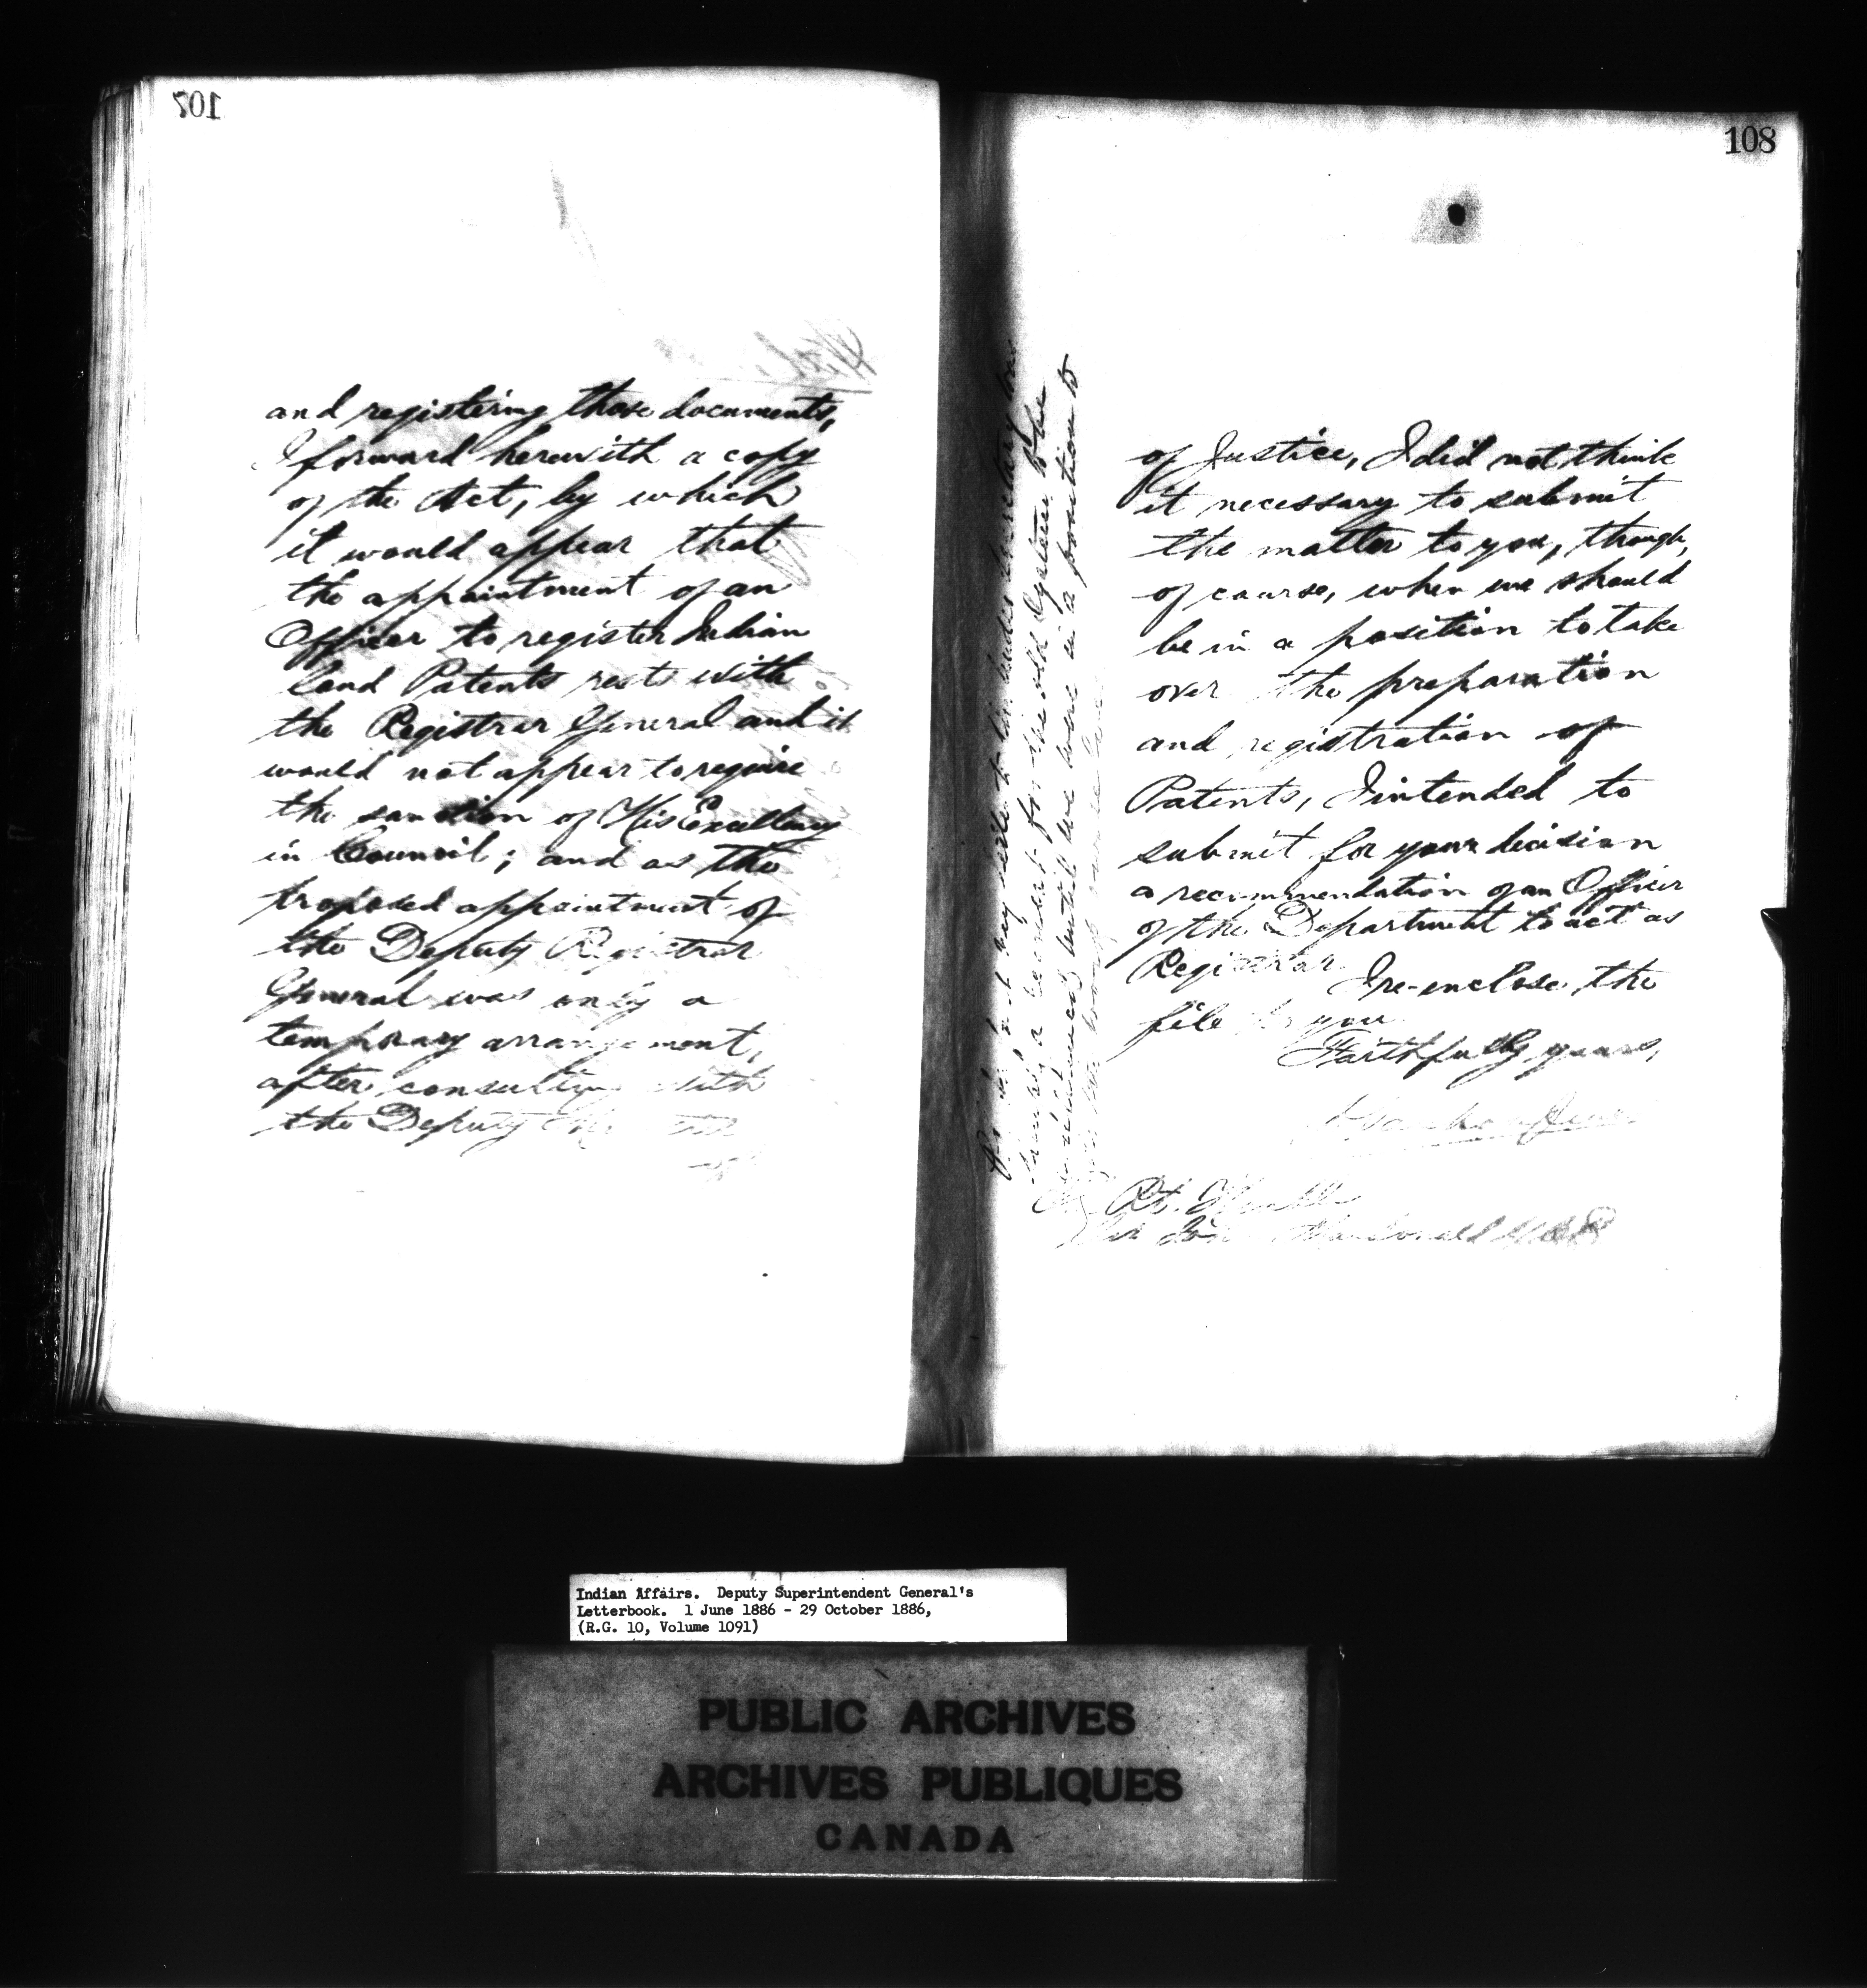 107
and registering those documents,
I forward herewith a copy
of the Act, by which
it would appear that
the appointment of an
Officer to register Indian
land Patents rests with
the Registrar General and it
would not appear to require
the sanction of His Excellency
in Council; and as the
proposed appointment of
the Deputy Registrar
General was only a
temporary arrangement,
after consulting with
the Deputy
108
of Justice, I did not think
it necessary to submit
the matter to you, though,
of course, when we should
be in a position to take
over the preparation
and registration of
Patents, I intended to
submit for your decision
a recommendation of an Officer
of the Department to act as
Registrar.
I re-enclose the
file to you
Faithfully yours,
Rt. Honble
Sir John Macdonald
for the old system to be
until we were in a position to
Indian Affairs. Deputy Superintendent General's
Letterbook. 1 June 1886 - 29 October 1886,
(R.G. 10, Volume 1091)
PUBLIC ARCHIVES
ARCHIVES PUBLIQUES
CANADA